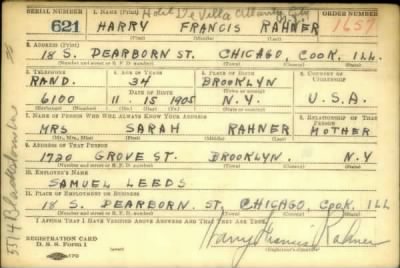 Hotel De Villa Atlantic City N.J.
SERIAL NUMBER 1. NAME (Print) ORDER NUMBER
621 HARRY FRANCIS RAHNER 1657
(First) (Middle) (Last)
2. ADDRESS (Print)
18 S. DEARBORN ST. CHICAGO, COOK, ILL.
(Number and street or R. F. D. number) (Town) (County) (State)
3. TELEPHONE 4. AGE IN YEARS 5. PLACE OF BIRTH 6. COUNTRY OF CITIZENSHIP
RAND. 34 BROOKLYN
DATE OF BIRTH (Town or county)
6100 11 15 1905 N.Y. U.S.A.
(Exchange) (Number) (Mo.) (Day) (Yr.) (State or country)
7. NAME OF PERSON WHO WILL ALWAYS KNOW YOUR ADDRESS 8. RELATIONSHIP OF THAT PERSON
MRS SARAH RAHNER MOTHER
(Mr., Mrs., Miss) (First) (Middle) (Last)
9. ADDRESS OF THAT PERSON
1720 GROVE ST. BROOKLYN. N.Y
(Number and street or R. F. D. number) (Town) (County) (State)
10. EMPLOYER'S NAME
SAMUEL LEEDS
11. PLACE OF EMPLOYMENT OR BUSINESS
18 S. DEARBORN ST. CHICAGO, COOK, ILL
(Number and street or R. F. D. number) (Town) (County) (State)
I AFFIRM THAT I HAVE VERIFIED ABOVE ANSWERS AND THAT THEY ARE TRUE.
REGISTRATION CARD
D. S. S. Form 1
Harry Francis Rahner
5514 Blackstone